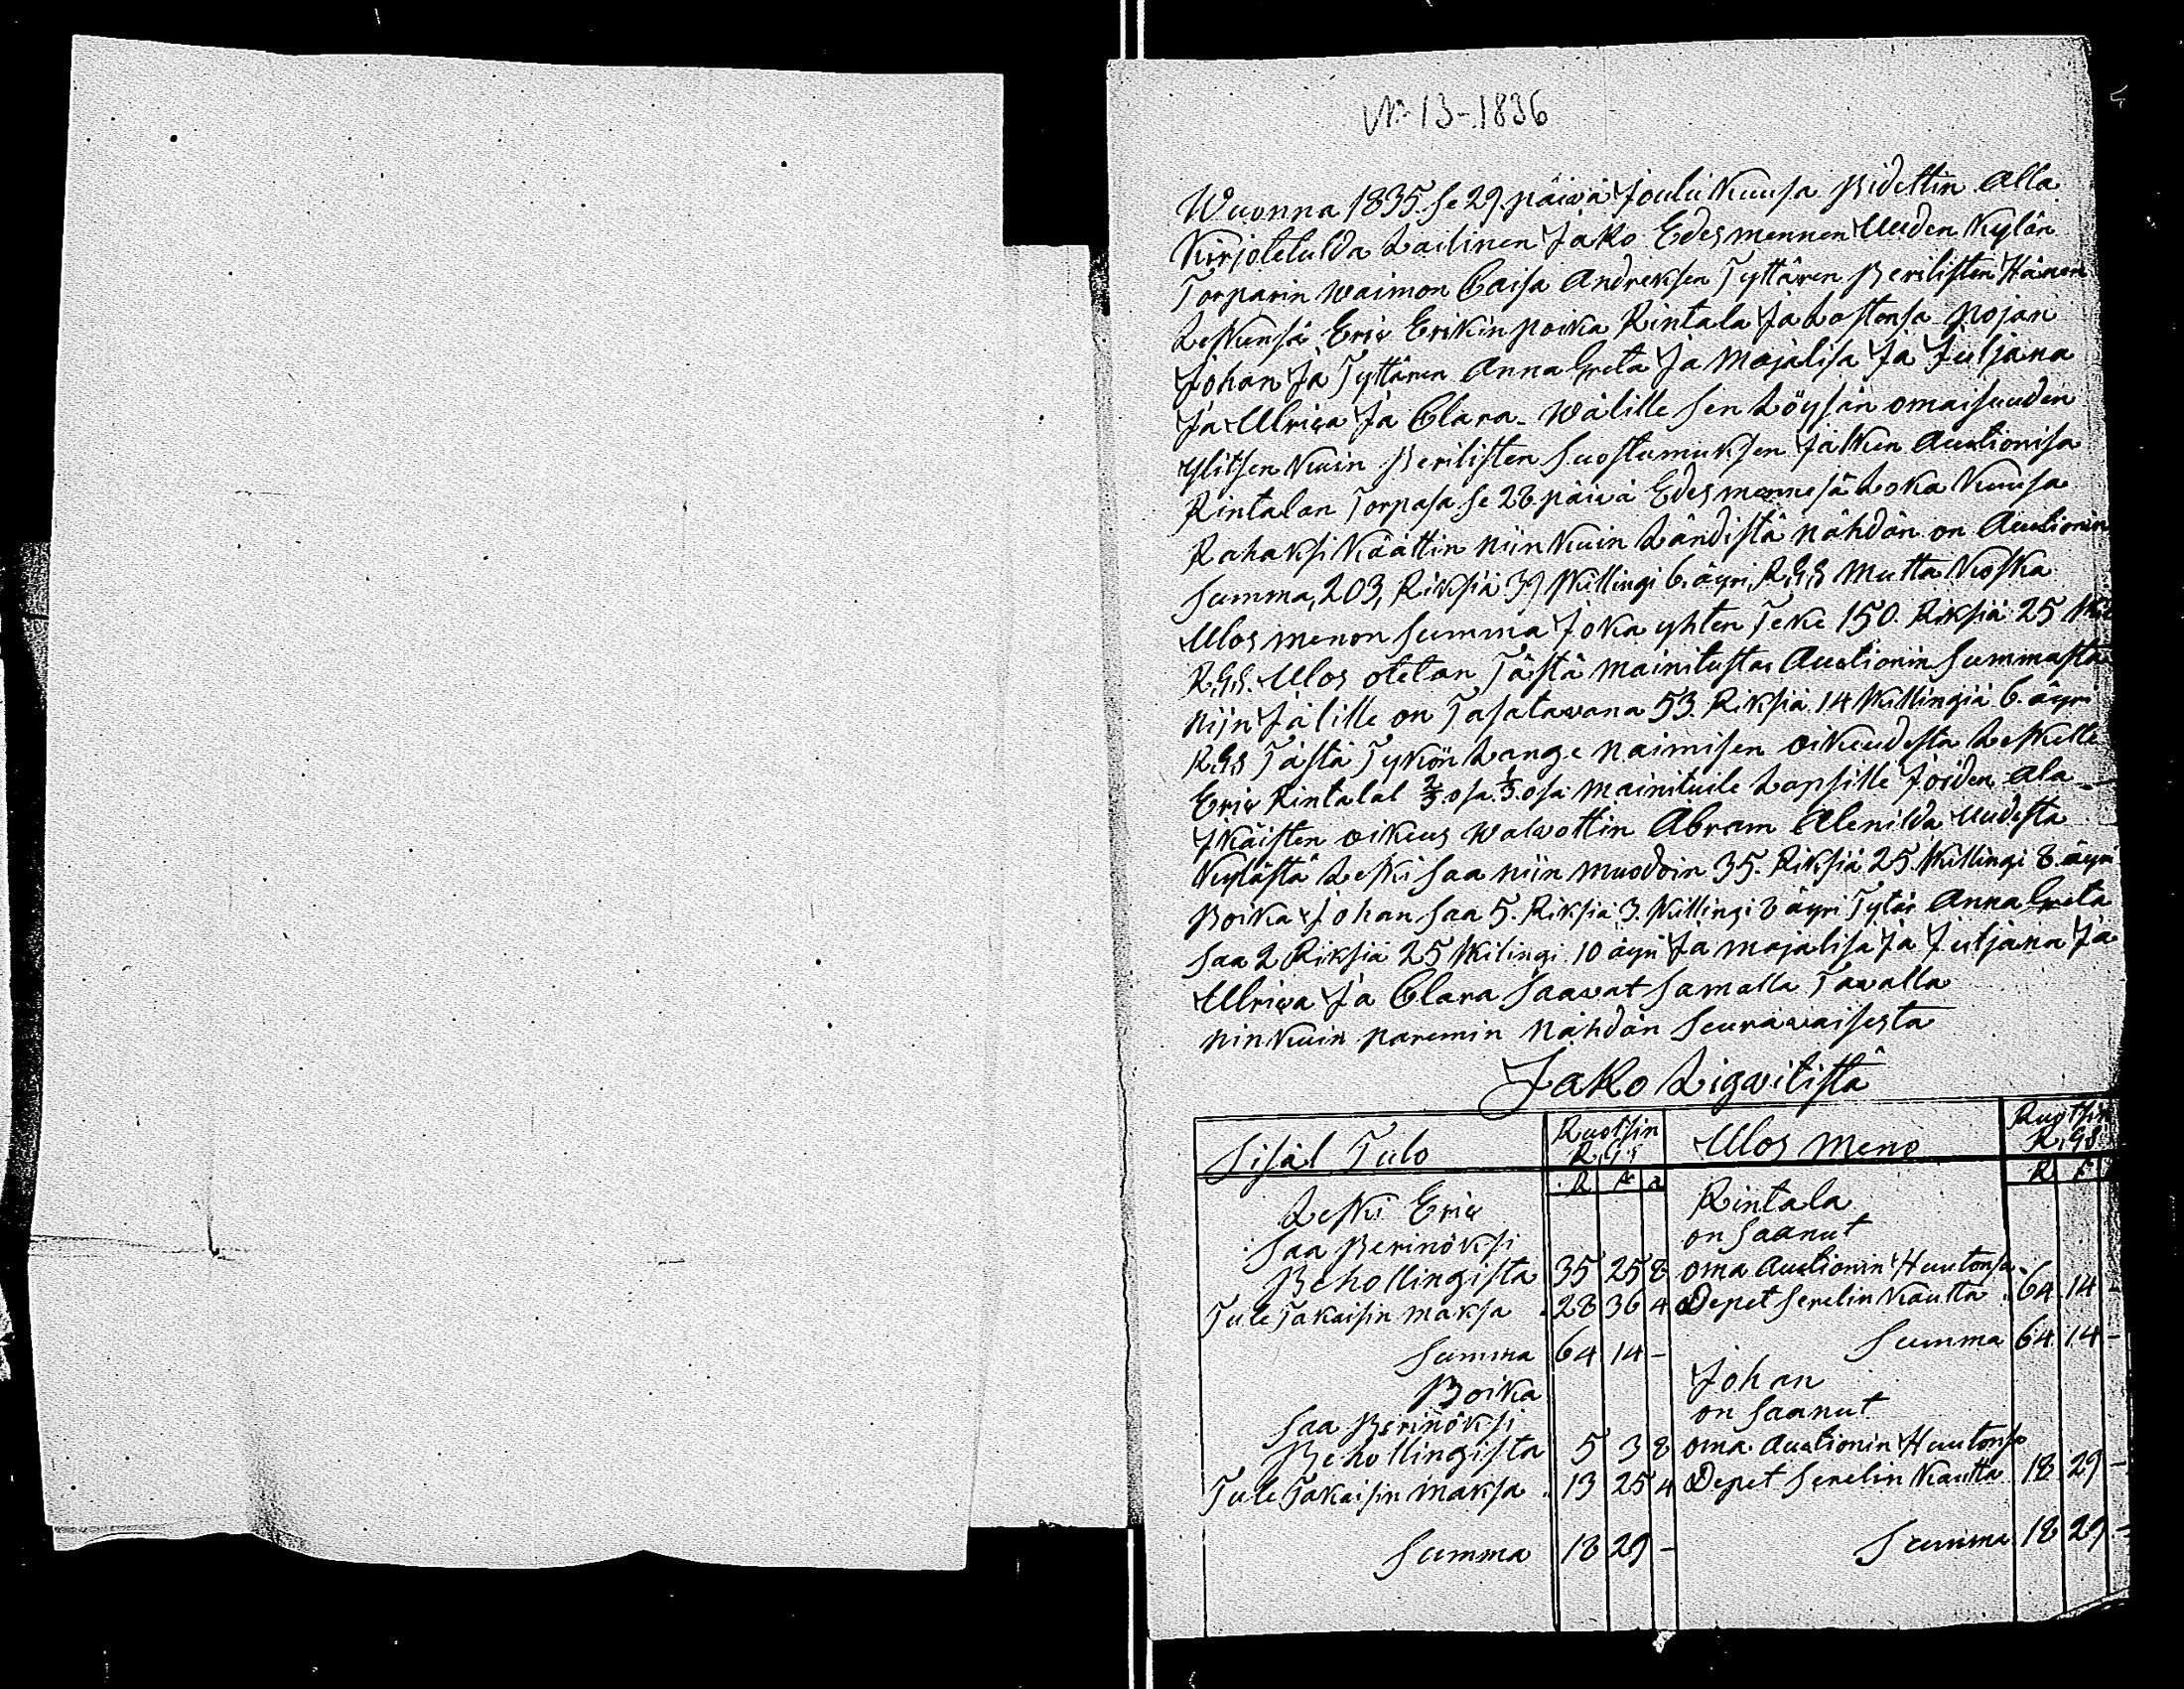 N:o 13-1836
Wuonna 1835. se 29. päivä Joulu Kuusa Pidettin alla
Kirjotetulda Lailinen Jako Edesmennen Uuden Kylän
Torparin waimon Caisa Andreksen Tyttären Perilisten Hänen
Leskensä Eric Erikin poika Rintala Ja Lastensa Pojan
Johan Ja Tyttären Anna Greta Ja Majalisa Ja Juljana
Ja Ulrica Ja Clara. wälille sen Löysän omaisuuden
Ylitsen Kuin Perilisten Suostumuksen Jälken Auctionisa
Rintalan Torpasa se 28. päivä Edesmennesä Loka Kuusa
Rahaksi Käättin niin Kuin Ländistä nähdän on Auctionin
Summa, 203, Riksiä 39 Skillingi 6. äyri, R,G,S Mutta Koska
Ulos menon Summa Joka yhten Teke 150. Riksiä 25 Ski
R,G,S. Ulos otetan Tästä mainitusta Auctionin Summasta
niin Jälille on Tasatavana 53. Riksiä 14 Skillingiä 6. äyri
R,G,S Tästä Tykön Lange Naimisen oikeudesta Leskelle
Eric Rintalal 2/3. osa. 1/3. osa mainituile Lapsille Joiden ala
Ikäisten oikeus walvottin Abram Alenilda Uudesta
Kylästä Leski saa niin muodoin 35. Riksiä 25. Skillingi 8. äyri
Poika Johan saa 5. Riksiä 3. Skillingi 8 äyri Tytär Anna Greta
saa 2 Riksiä 25 Skilingi. 10 äyri Ja majalisa Ja Juljana Ja
Ulrica Ja Clara Saavat Samalla Tavalla
nin Kuin paremin nähdän Seuravaisesta
Jako Ligvitistä
Sisäl Tulo Ruotsin R,G,S Ulos Meno Ruotsin R,G,S
R S a R S
Leski Eric Rintala
saa Perinöksi on Saanut
Behollingista 35 25 8 oma Auctionin Huutonsa
Tule Takaisin maksa 28 36 4 Depet Serelin Kautta 64 14 -
Summa 64 14 - Summa 64 14 -
Poika Johan
saa Perinöksi on Saanut
Behollingista 5 3 8 oma Auctionin Huutonsa
Tule Takaisin maksa 13 25 4 Depet Serelin Kautta 18 29 -
Summa 18 29 - Summa 18 29 -